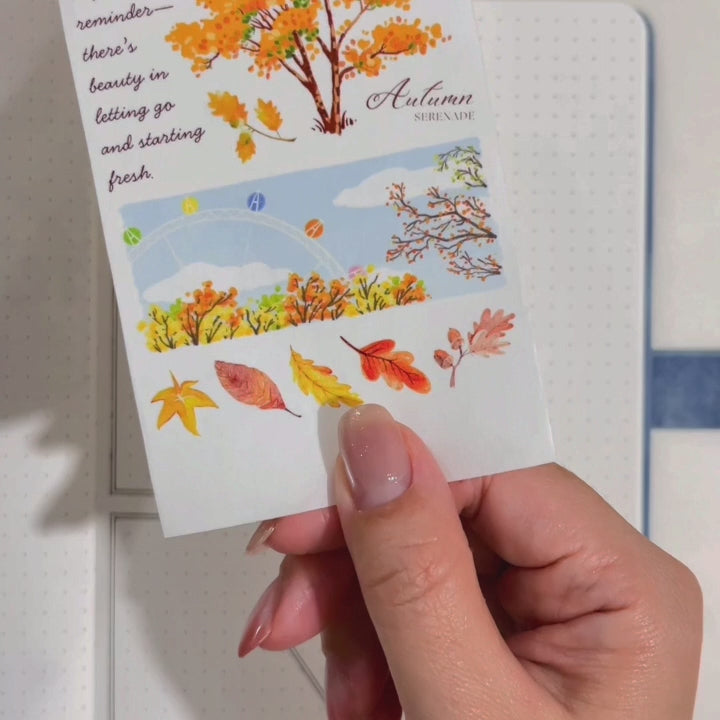 reminder—
there's
beauty in
letting go
and starting
fresh.
Autumn
SERENADE